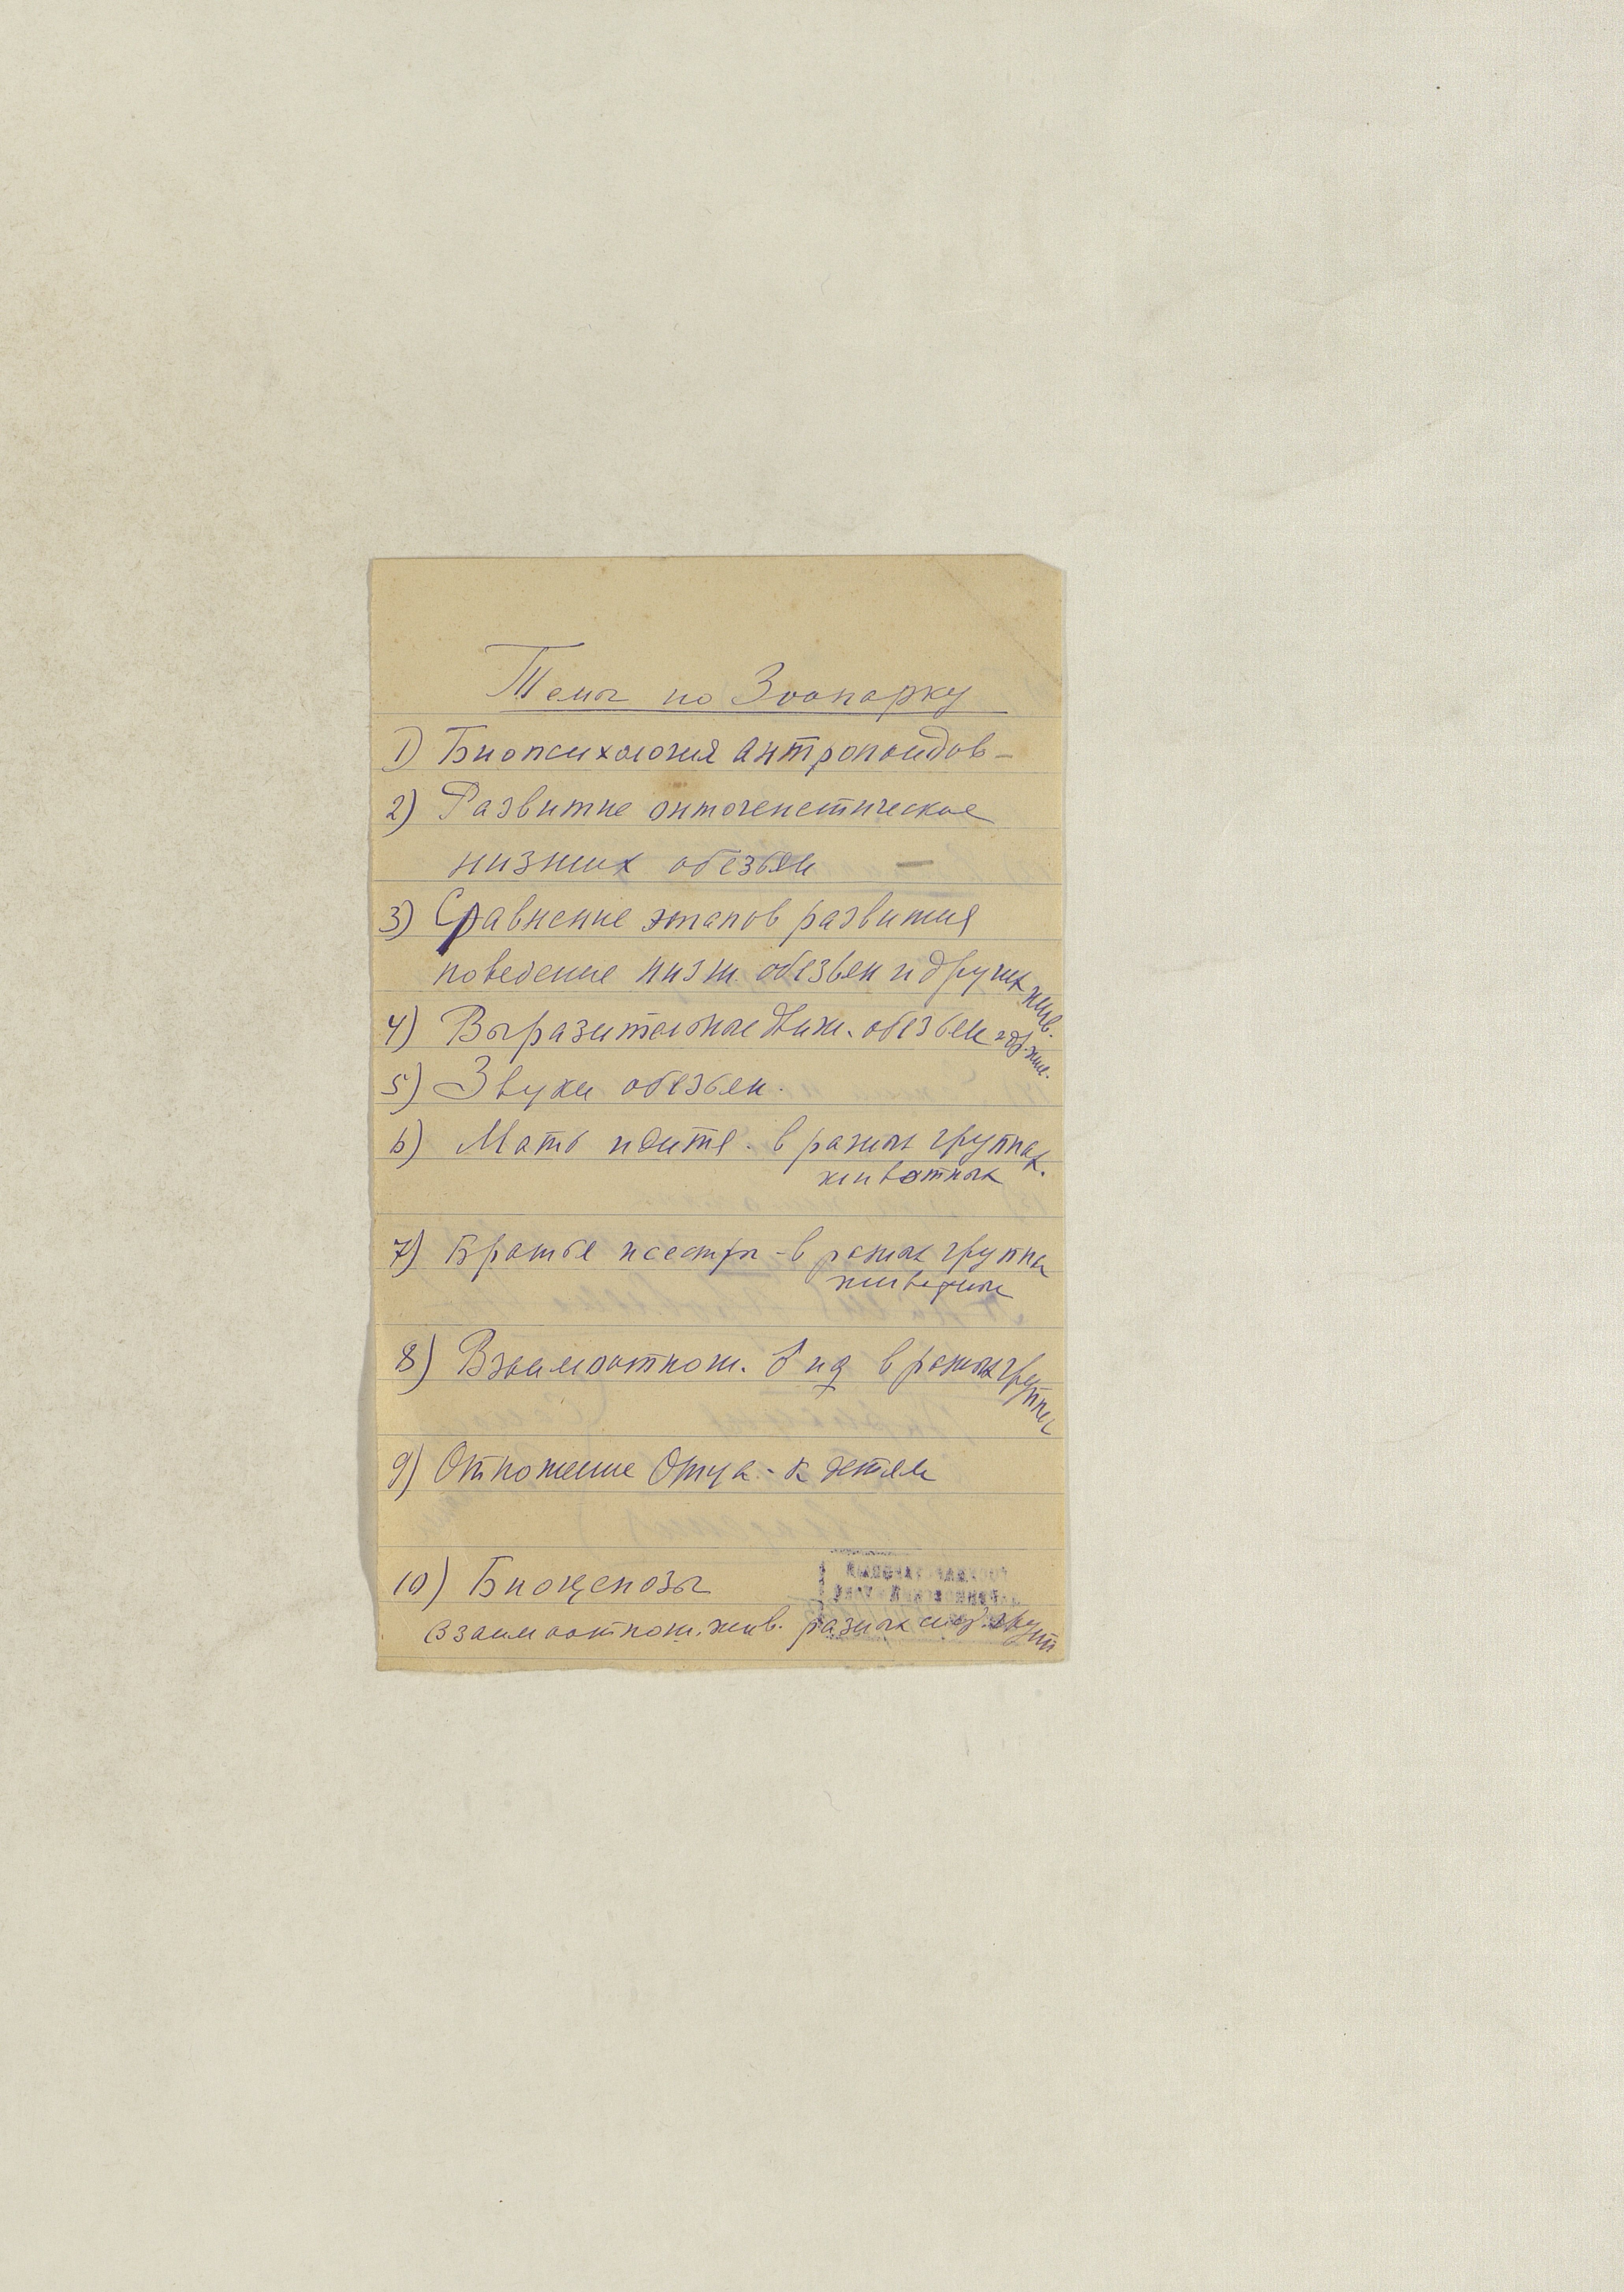 Темы по Зоопарку
1) Биопсихология антропоидов –
2) Развитие онтогенетическое
низших обезьян —
3) Сравнение этапов развития
поведение низш. обезьян и других жив.
4) Выразительные движ. обезьян и др. жив.
5) Звуки обезьян.
6) Мать и дитя - в разных группах.
животных
7) Братья и сестры - в разных группах
животных
8) Взаимоотнош. ♂ и ♀ в разных группах
9) Отношение Отца - к детям
10) Биоценозы
Взаимоотнош. жив. разных групп